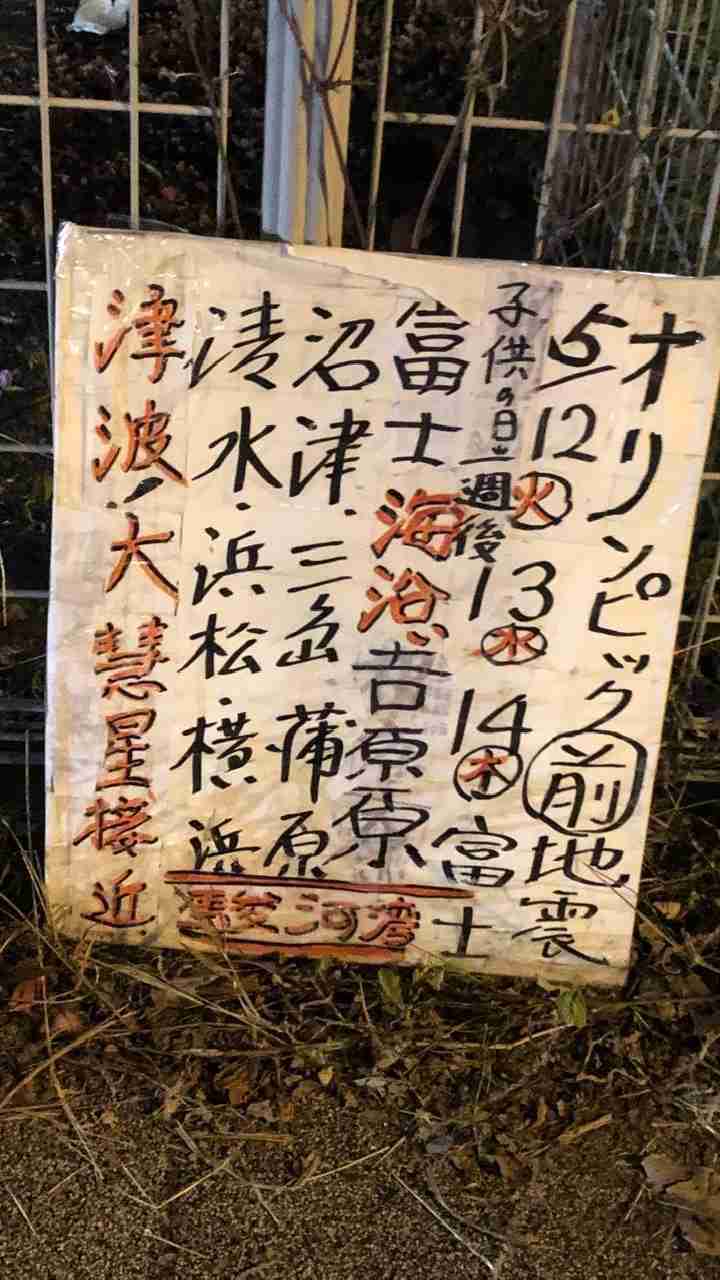 オリンピック前地震
5/12㊋13㊌14㊍富士
子供の日一週後
富士海沿い吉原原
沼津、三島蒲原
清水・浜松・横浜
駿河湾
津波!大慧星接近